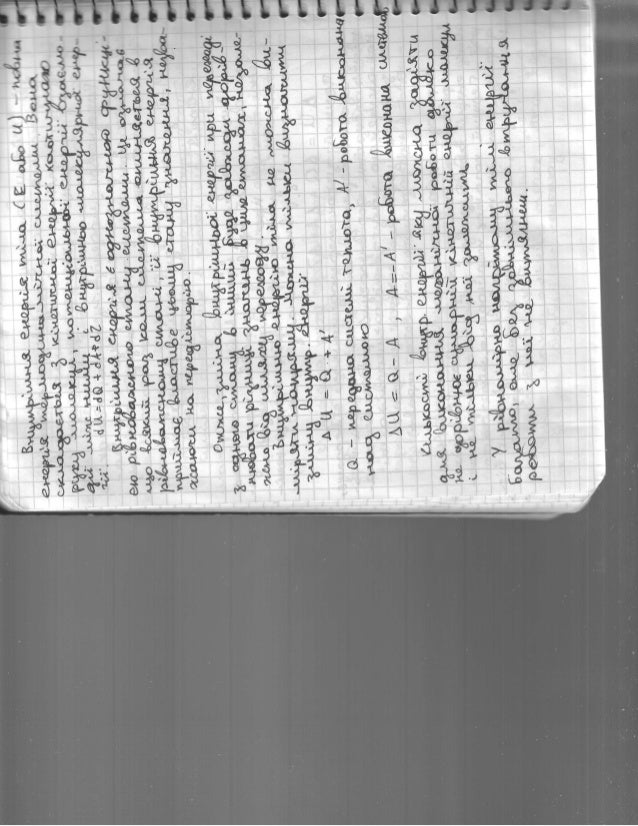 Внутрішня енергія тіла (E або U) - повна
енергія термодинамічної системи. Вона
складається з кінетичної енергії хаотичного
руху молекул, потенціальної енергії взаємо-
дії між ними і внутрішньо молекулярної енер-
гії. dU = dQ + dA + dZ
Внутрішня енергія є однозначною функці-
єю рівноважного стану системи. Це означає
що всякий раз коли система опиняється в
рівноважному стані її внутрішня енергія
приймає властиве цьому стану значення, незва-
жаючи на передісторію.
Отже, зміна внутрішньої енергії при переході
з одного стану в інший буде завжди дорів-
нювати різниці значень в цих станах, незале-
жно від шляху переходу.
Внутрішню енергію тіла не можна ви-
міряти напряму. Можна тільки визначити
зміну внутр. енергії
ΔU = Q + A'
Q - передана системі теплота, A' - робота виконана
над системою
ΔU = Q - A , A = - A' - робота виконана системою
Кількості внутр енергії яку можна задіяти
для виконання механічної роботи далеко
не дорівнює сумарній кінетичній енергії молекул
і не тільки від неї залежить
У рівномірно нагрітому тілі енергії
багато, але без зовнішнього втручання
роботи з неї не витягнем.